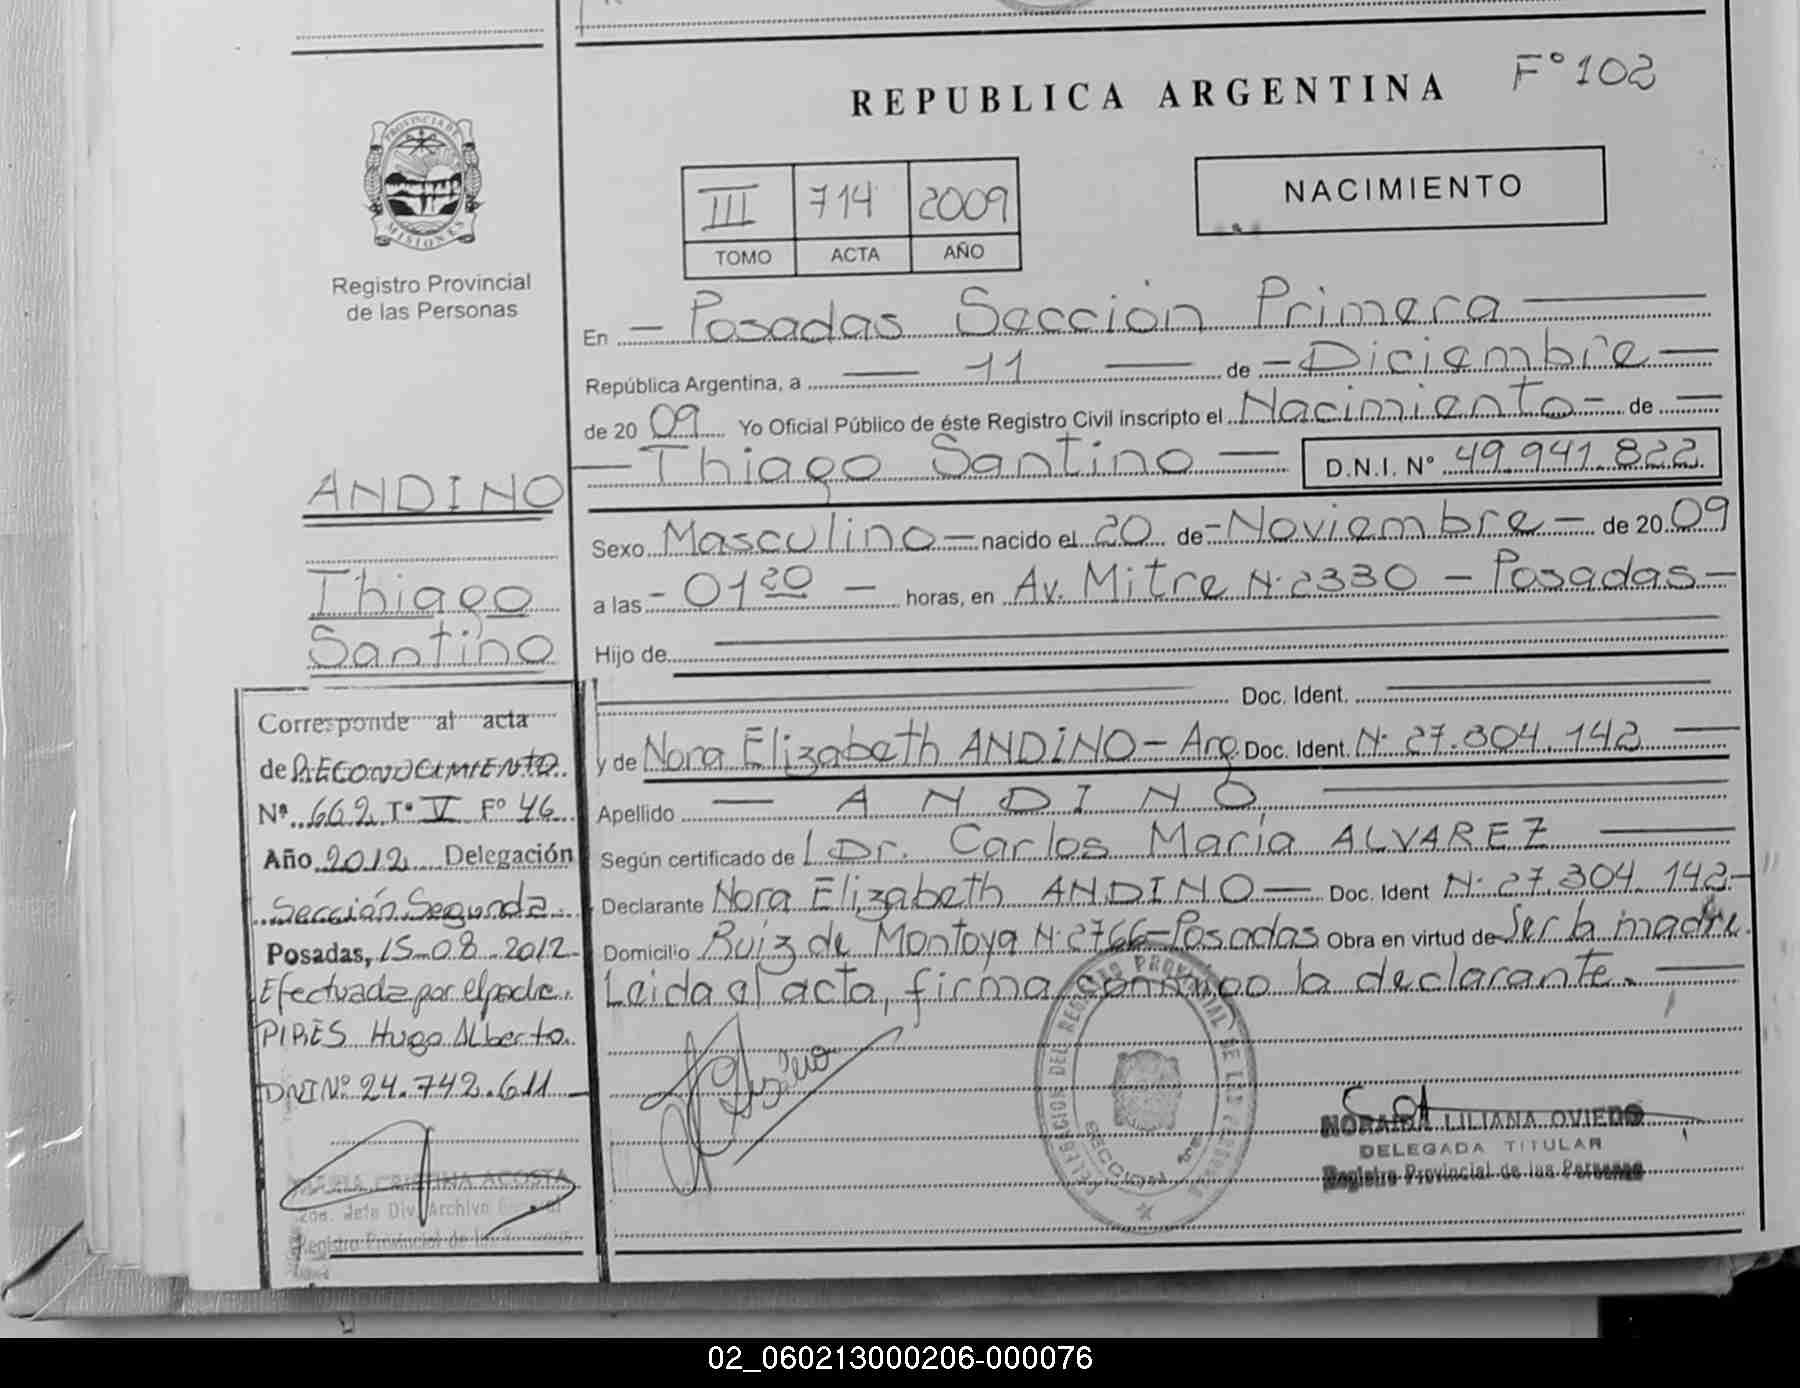 REPUBLICA ARGENTINA
F° 102
PROVINCIA DE
MISIONES
Registro Provincial
de las Personas
III 714 2009
TOMO ACTA AÑO
NACIMIENTO
En - Posadas Sección Primera
República Argentina, a 11 de - Diciembre -
de 20 09 Yo Oficial Público de éste Registro Civil inscripto el Nacimiento - de -
- Thiago Santino - D.N.I. N° 49.941.822
Sexo Masculino - nacido el 20 de - Noviembre - de 20 09
a las - 01 20 - horas, en Av. Mitre N° 2330 - Posadas -
Hijo de
Doc. Ident.
y de Nora Elizabeth ANDINO - Arg. Doc. Ident. N° 27.304.142
Apellido - ANDINO
Según certificado de Dr. Carlos María ALVAREZ
Declarante Nora Elizabeth ANDINO - Doc. Ident N° 27.304.142 -
Domicilio Ruiz de Montoya N° 2766 - Posadas Obra en virtud de Ser la madre.
Leida el acta, firma conmigo la declarante. -
ANDINO
Thiago
Santino
Corresponde al acta
de RECONOCIMIENTO
Nº 662 T° V F° 46
Año 2012 Delegación
Sección Segunda.
Posadas, 15-08-2012
Efectuada por el padre.
PIRES Hugo Alberto.
DNI Nº 24.742.611
MARIA CRISTINA ACOSTA
Jefa Div. Archivo General
Registro Provincial de las
DELEGACION DEL REGISTRO PROVINCIAL DE LAS PERSONAS
SECCION
NORAIDA LILIANA OVIEDO
DELEGADA TITULAR
Registro Provincial de las Personas
02_060213000206-000076